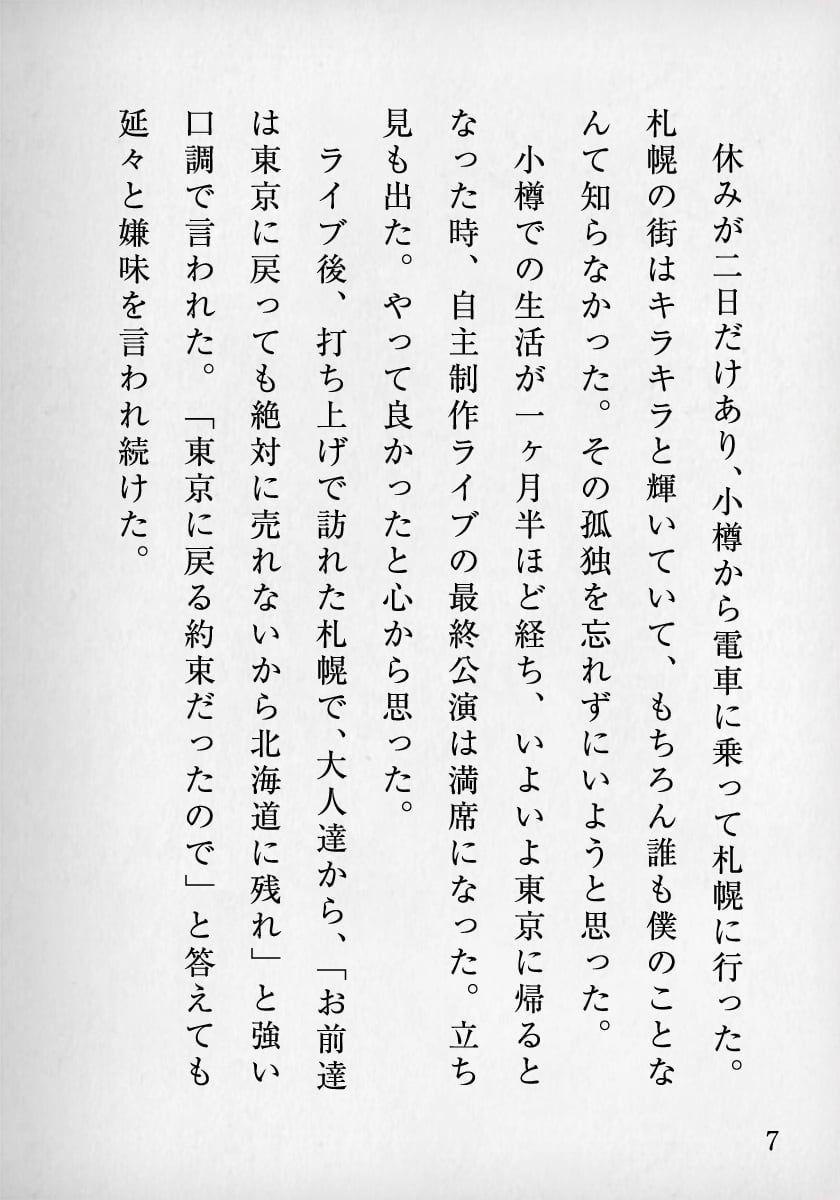 休みが二日だけあり、小樽から電車に乗って札幌に行った。
札幌の街はキラキラと輝いていて、もちろん誰も僕のことな
んて知らなかった。その孤独を忘れずにいようと思った。
小樽での生活が一ヶ月半ほど経ち、いよいよ東京に帰ると
なった時、自主制作ライブの最終公演は満席になった。立ち
見も出た。やって良かったと心から思った。
ライブ後、打ち上げで訪れた札幌で、大人達から、「お前達
は東京に戻っても絶対に売れないから北海道に残れ」と強い
口調で言われた。「東京に戻る約束だったので」と答えても
延々と嫌味を言われ続けた。
7